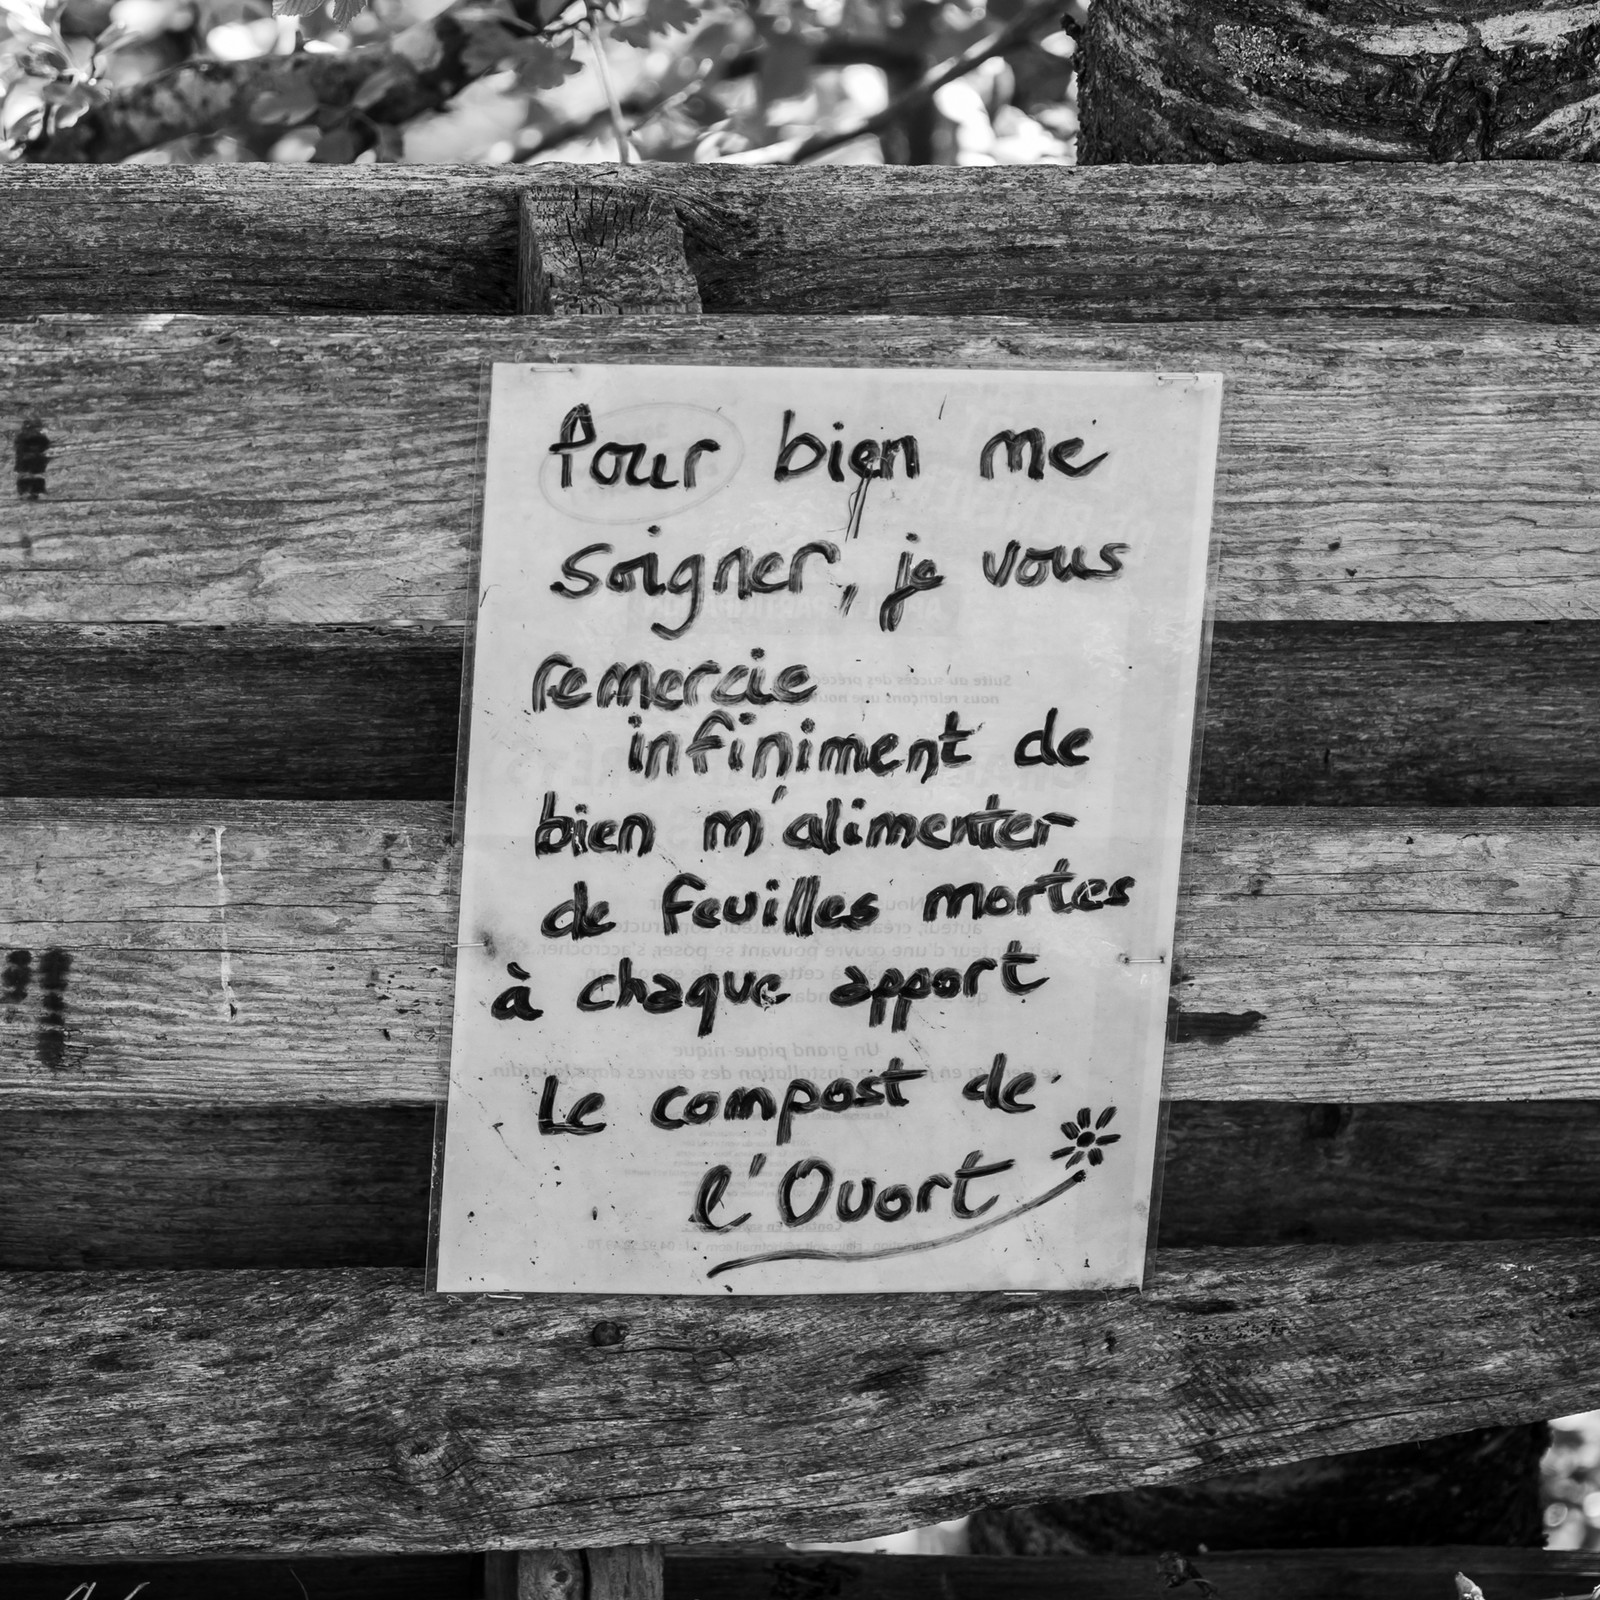 Pour bien me
soigner, je vous
remercie
infiniment de
bien m'alimenter
de feuilles mortes
à chaque apport
Le compost de
l'Ouort